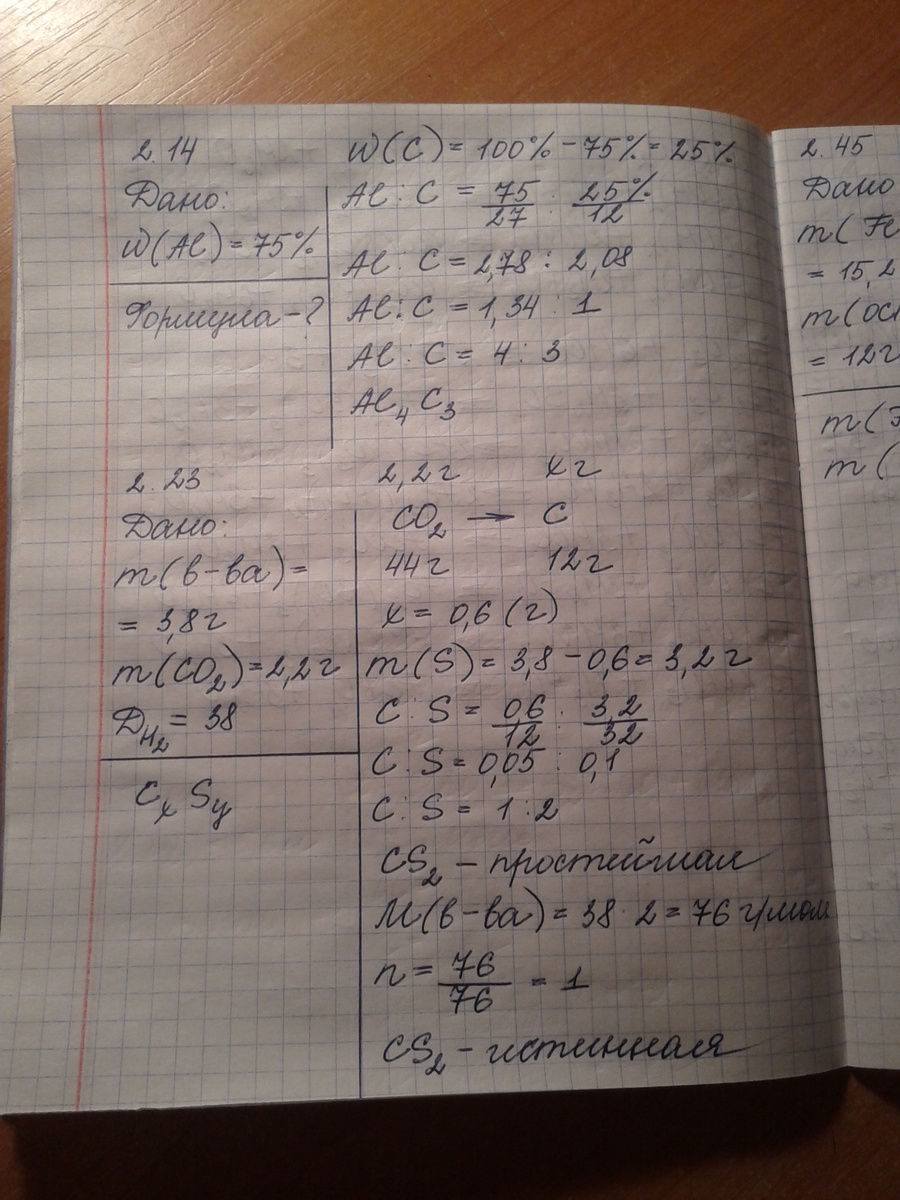 2.14
Дано:
W(Al) = 75%
Формула - ?
W(C) = 100% - 75% = 25%
Al : C = 75/27 : 25%/12
Al : C = 2,78 : 2,08
Al : C = 1,34 : 1
Al : C = 4 : 3
Al₄C₃
2.23
Дано:
m(в-ва) =
= 3,8г
m(CO₂) = 2,2г
D_H₂ = 38
CₓSᵧ
2,2г xг
CO₂ → C
44г 12г
x = 0,6 (г)
m(S) = 3,8 - 0,6 = 3,2г
C : S = 0,6/12 : 3,2/32
C : S = 0,05 : 0,1
C : S = 1 : 2
CS₂ - простейшая
M(в-ва) = 38 · 2 = 76 г/моль
n = 76/76 = 1
CS₂ - истинная
2.45
Дано
m(Fe
= 15,2
m(
= 12г
m(
m(